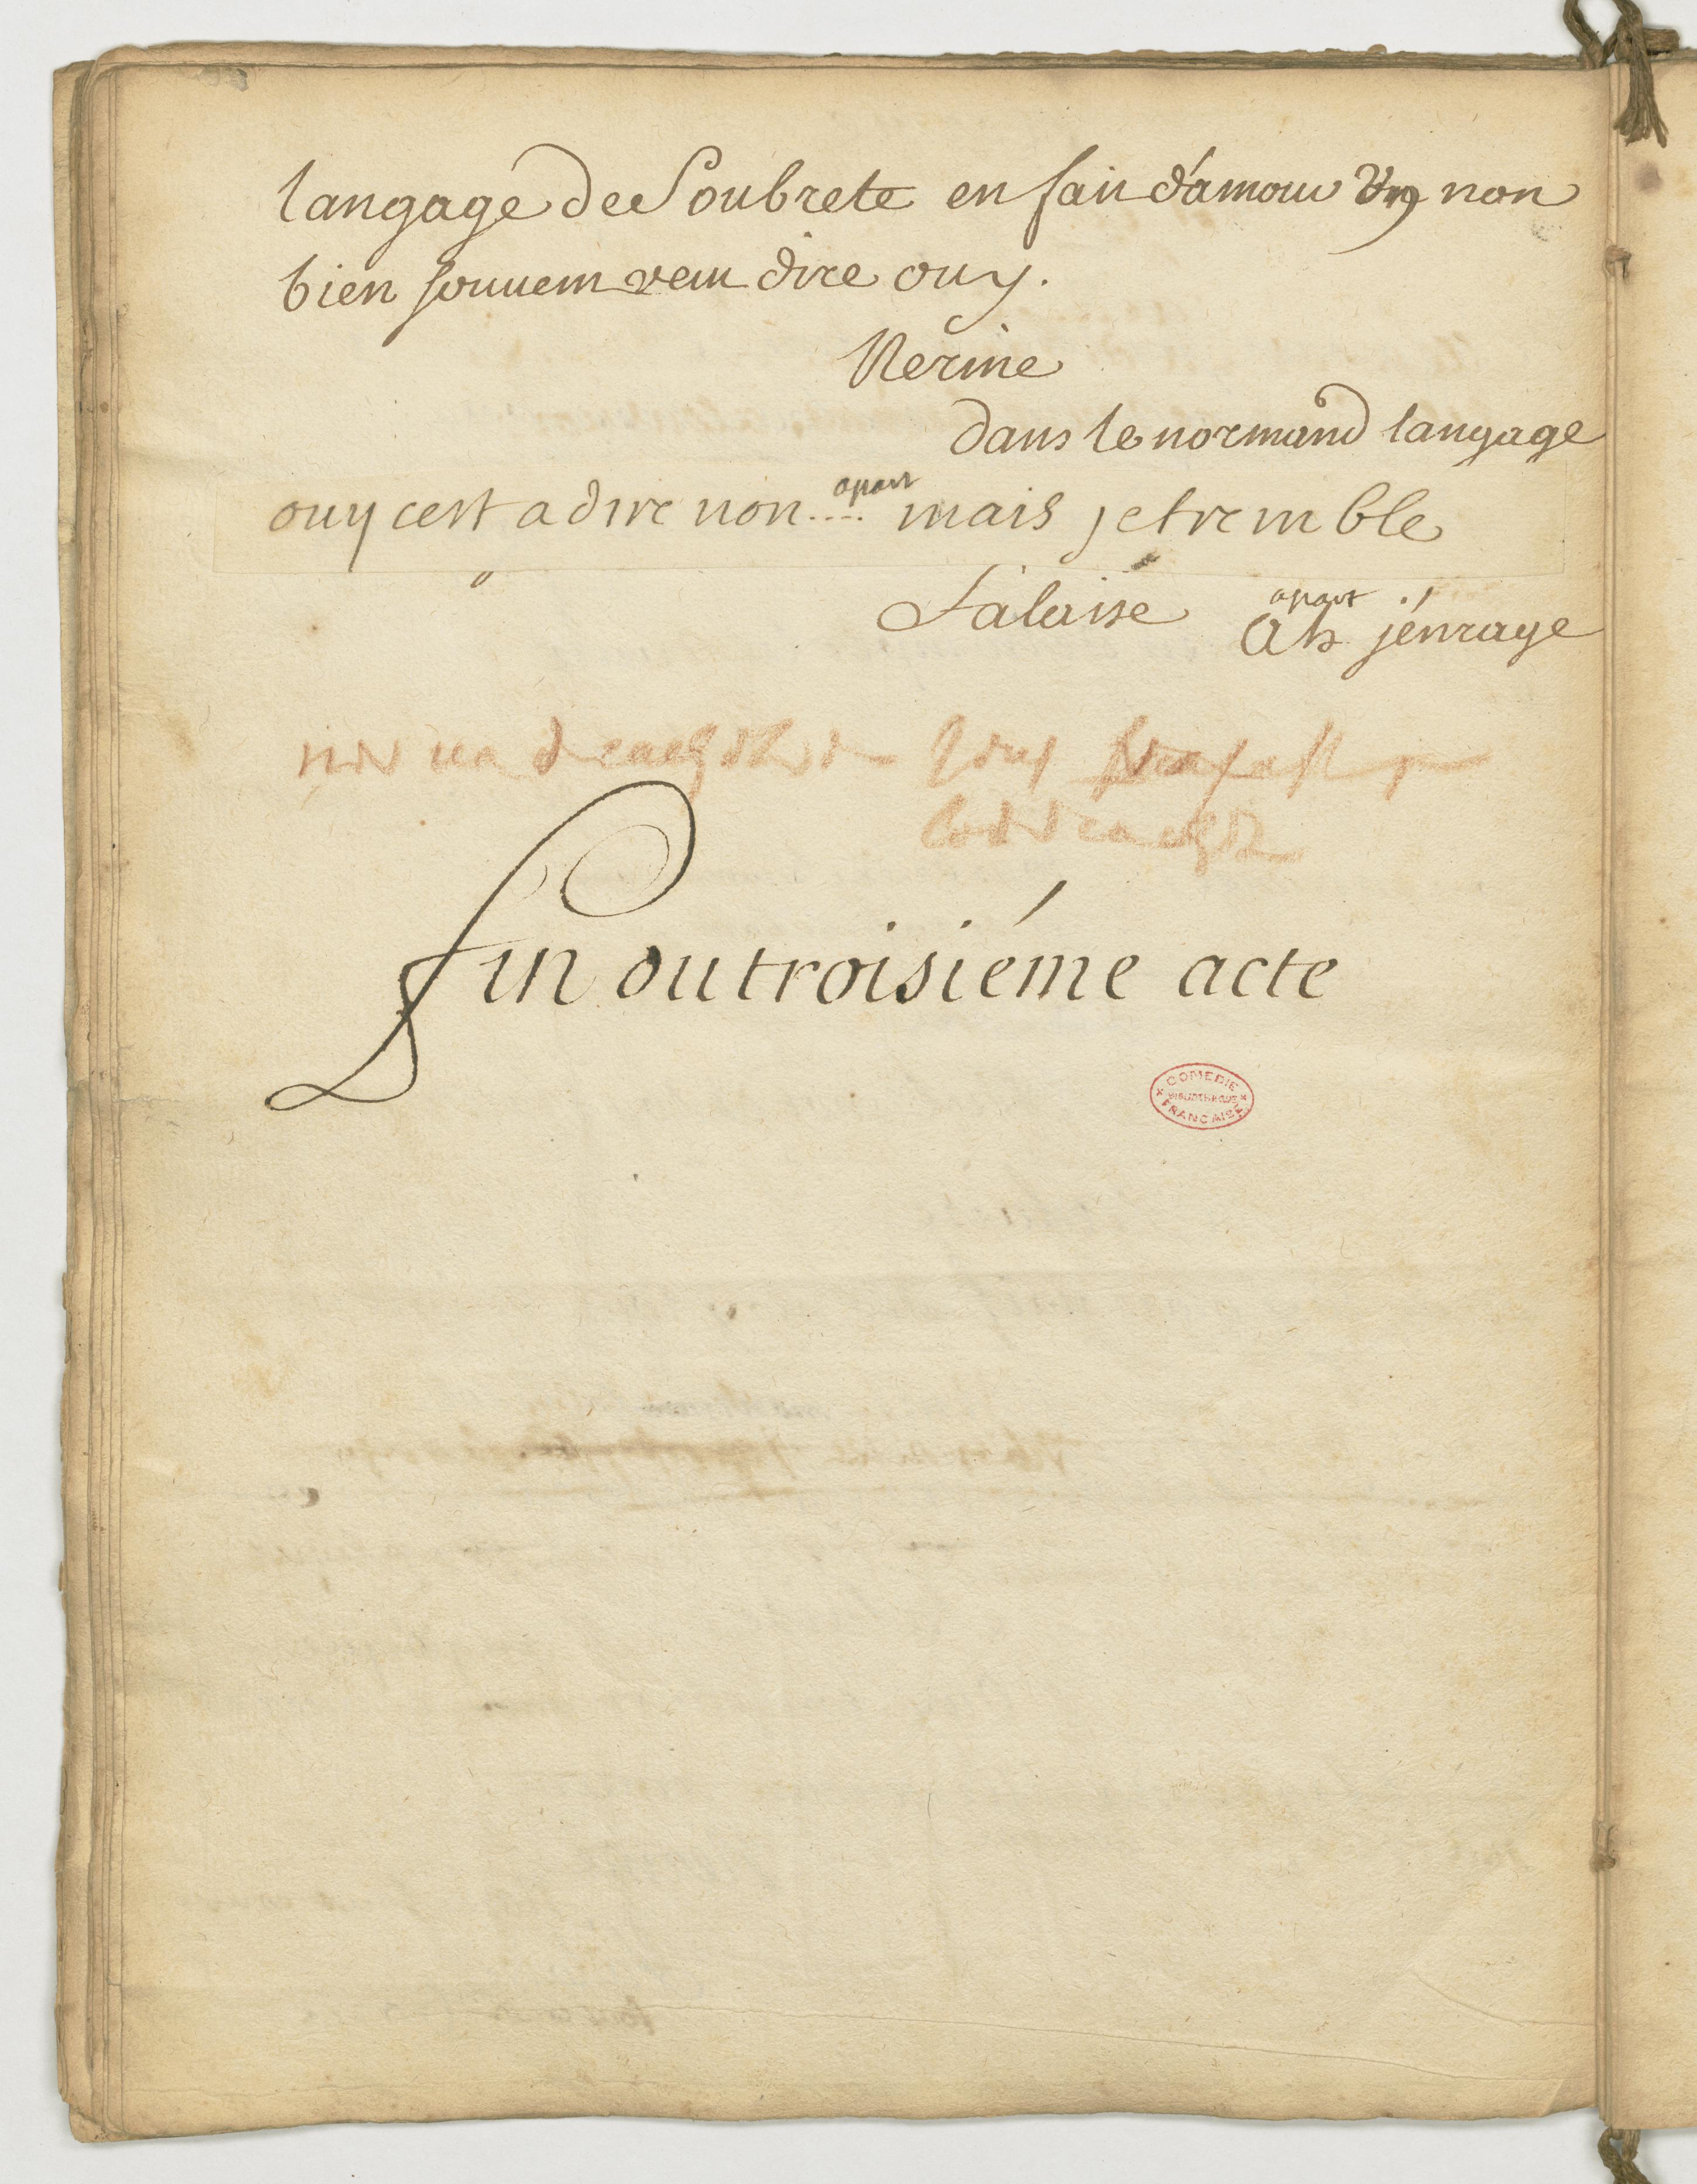 langage de Soubrete en fait d'amour Un non
bien souuent veut dire ouy.
Nerine
dans le normand langage
apart
ouy cest a dire non.... mais je tremble
apart
Falaise Ah j'enrage
fin du troisiéme acte
COMEDIE
BIBLIOTHEQUE
FRANÇAISE